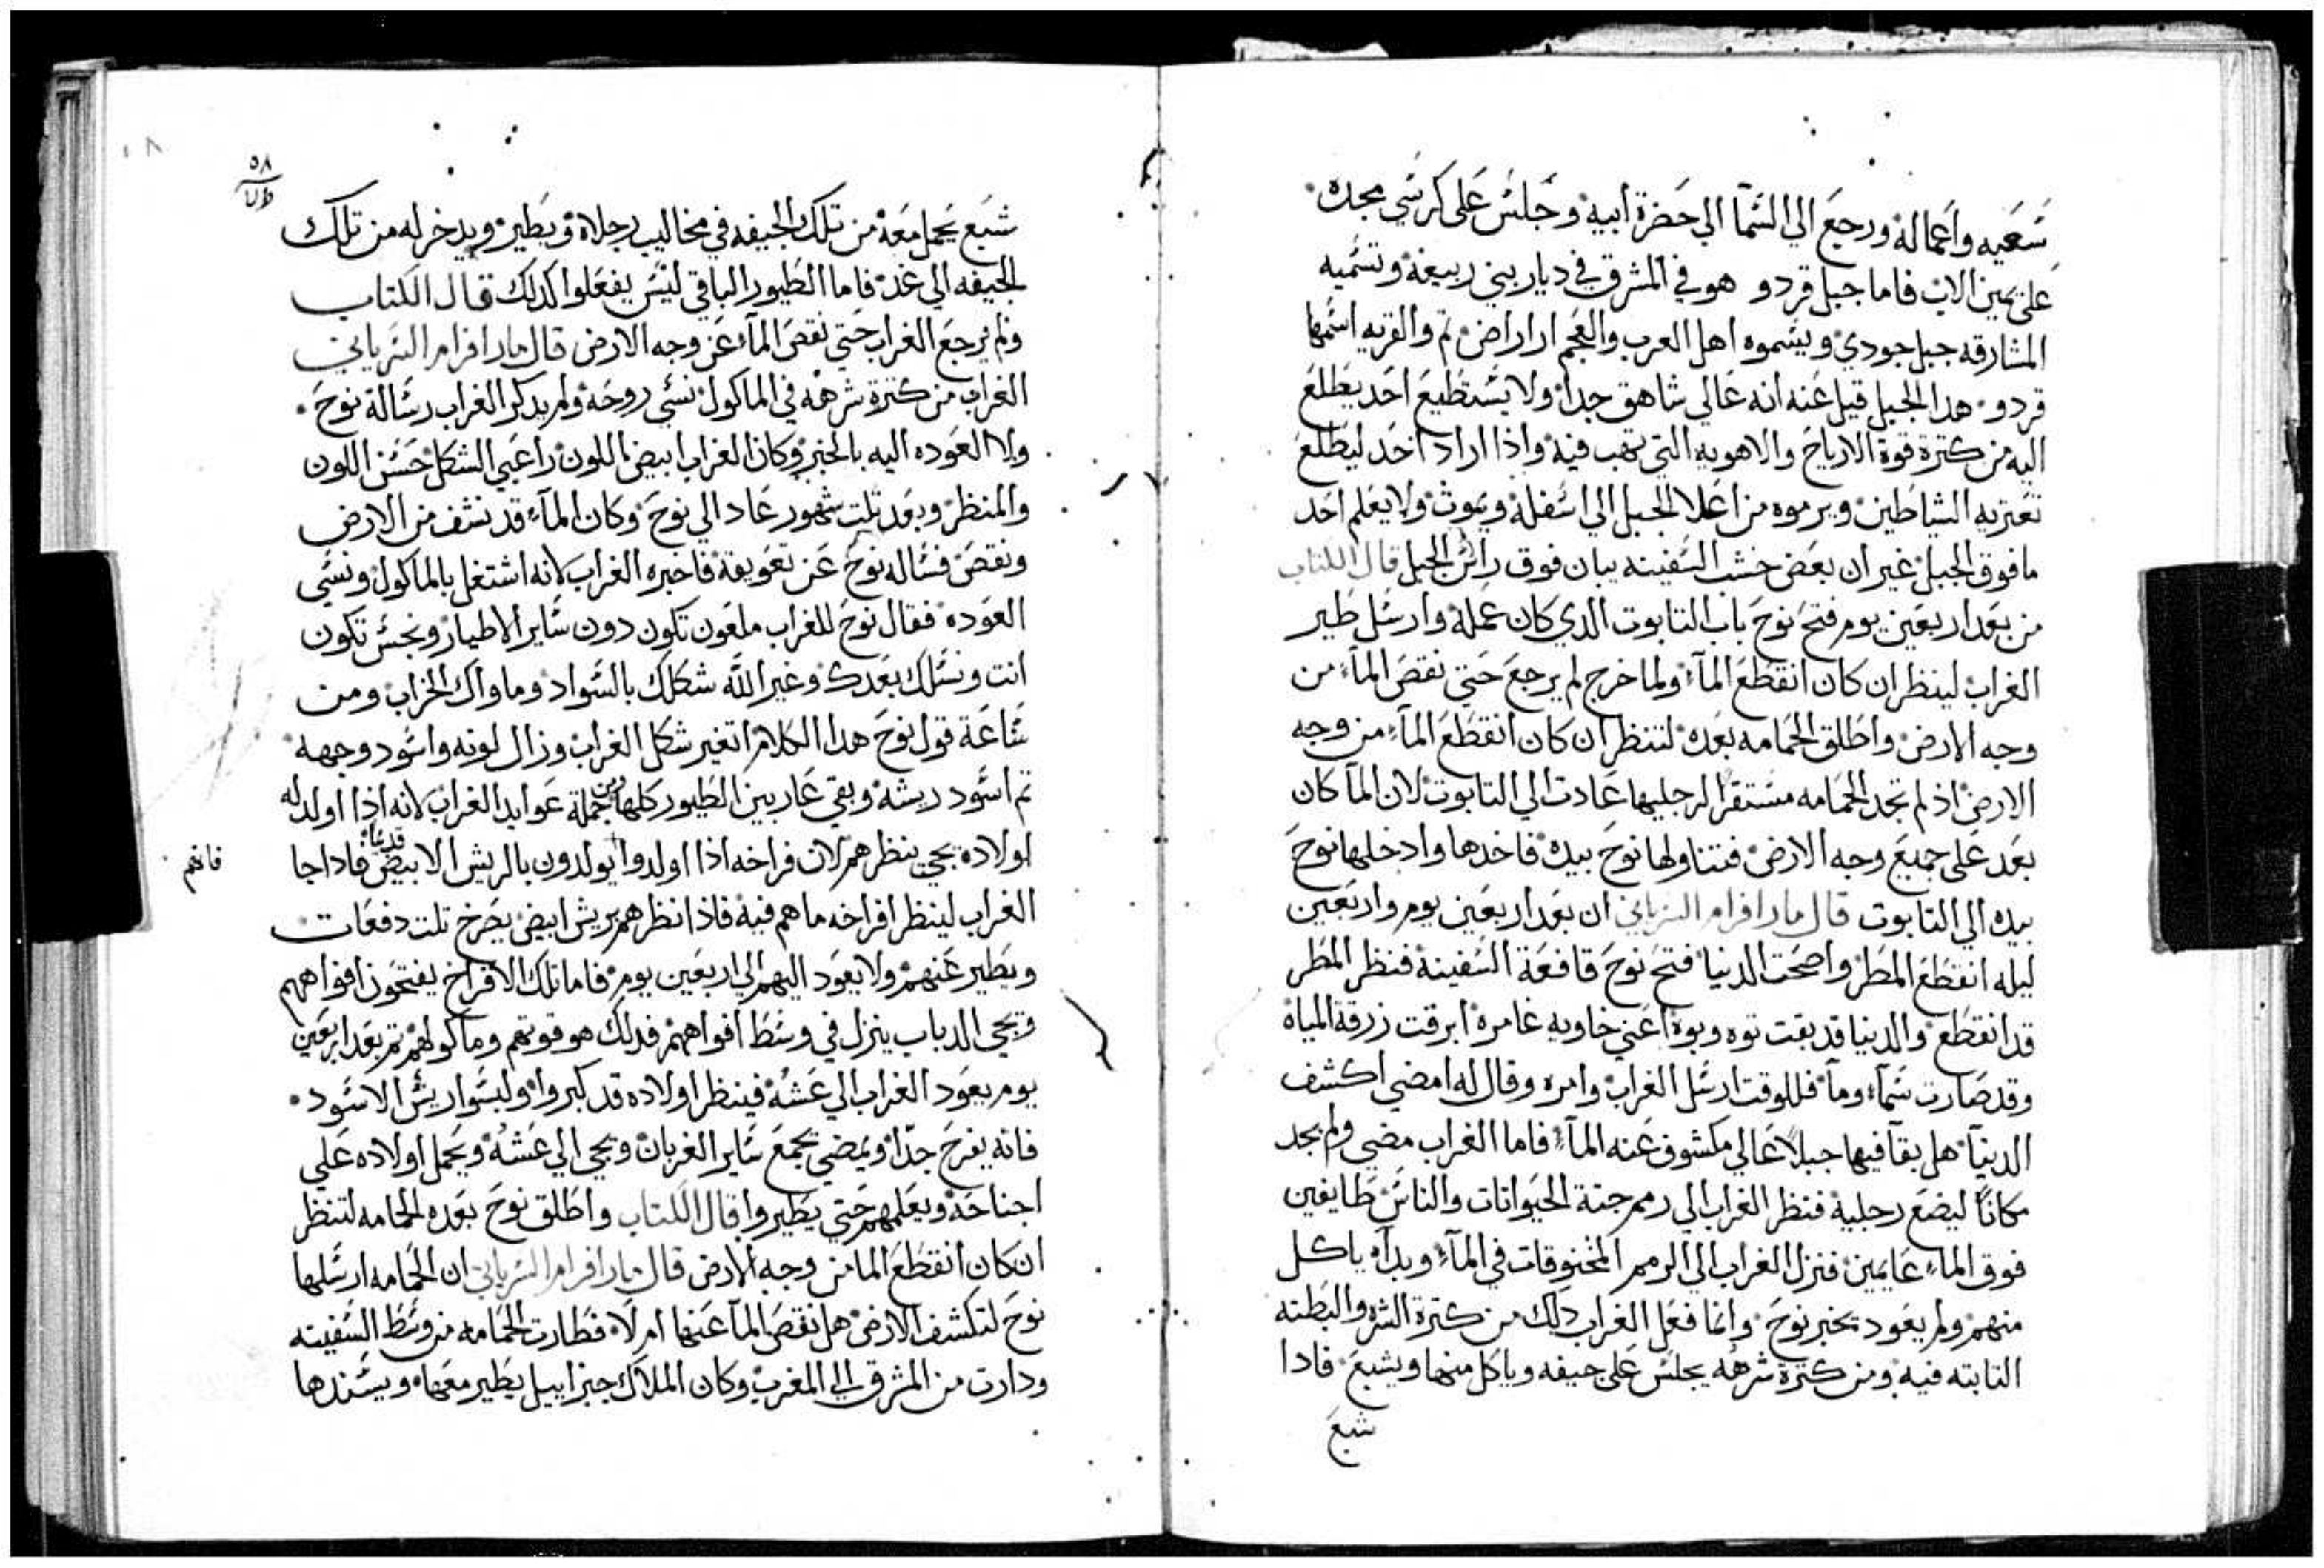 سعيه واعماله ورجع الي السما الي حضرة ابيه وجلس علي كرسي مجده
علي يمين الاب فاما جبل قردو هو في المشرق في ديار بني ربيعة وتسميه
المشارقه جبل جودي ويسموه اهل العرب والعجم اراراض تم والقريه اسمها
قردو هدا الجبل قيل عنه انه عالي شاهق جدا ولا يستطيع احد يطلع
اليه من كترة قوة الارياح والاهويه التي تهب فيه واذا اراد احد ليطلع
تعتريه الشياطين ويرموه من اعلا الجبل الي اسفله ويموت ولا يعلم احد
ما فوق الجبل غير ان بعض خشب السفينه يبان فوق راس الجبل قال الكتاب
من بعد اربعين يوم فتح نوح باب التابوت الدي كان عمله وارسل طير
الغراب لينظر ان كان انقطع المآء ولما خرج لم يرجع حتي نقص المآء من
وجه الارض واطلق الحمامه بعده لتنظر ان كان انقطع المآء من وجه
الارض اذ لم تجد الحمامه مستقرا لرجليها عادت الي التابوت لان المآ كان
بعد علي جميع وجه الارض فتناولها نوح بيده فاخدها وادخلها نوح
بيده الي التابوت قال مار افرام السرياني ان بعد اربعين يوم واربعين
ليله انقطع المطر واصحت الدنيا فتح نوح قافعة السفينة فنظر المطر
قد انقطع والدنيا قد بقت توه وبوه اعني خاويه غامره ابرقت زرقة المياه
وقد صارت سمآء ومآ فللوقت ارسل الغراب وامره وقال له امضي اكشف
الدنيآ هل بقآ فيها جبلا عالي مكشوف عنه المآء فاما الغراب مضي ولم يجد
مكانا ليضع رجليه فنظر الغراب الي رمم جتة الحيوانات والناس طايفين
فوق المآء عايمين فنزل الغراب الي الرمم المخنوقات في المآء وبدآه ياكل
منهم ولم يعود بخبر نوح وانما فعل الغراب دلك من كترة الشره والبطنه
التابته فيه ومن كترة شرهه يجلس علي جيفه وياكل منها ويشبع فادا
شبع
٥٨
شبع يحمل معه من تلك الجيفه في مخاليب رجلاه ويطير ويدخر له من تلك
الجيفه الي غد فاما الطيور الباقي ليس يفعلوا كدلك قال الكتاب
ولم يرجع الغراب حتي نقص المآء عن وجه الارض قال مار افرام السرياني
الغراب من كترة شرهه في الماكول نسي روحه ولم يدكر الغراب رسالة نوح
ولا العوده اليه بالخبر وكان الغراب ابيض اللون راعبي الشكل حسن اللون
والمنظر وبعد تلت شهور عاد الي نوح وكان المآء قد نشف من الارض
ونقص فساله نوح عن تعويقه فاخبره الغراب لانه اشتغل بالماكول ونسي
العوده فقال نوح للغراب ملعون تكون دون ساير الاطيار ونجس تكون
انت ونسلك بعدك وغير الله شكلك بالسواد وماواك الخراب ومن
ساعة قول نوح هدا الكلام اتغير شكل الغراب وزال لونه واسود وجهه
تم اسود ريشه وبقي عار بين الطيور كلها ومن جملة عوايد الغراب لانه اذا اولد له
اولاده يجي ينظرهم لان فراخه اذا اولدوا يولدون بالريش الابيض فادا جا
فافهم
الغراب لينظر افراخه ما هم فيه فاذا نظرهم بريش ابيض يصرخ تلت دفعات
ويطير عنهم ولا يعود اليهم الي اربعين يوم فاما تلك الافراخ يفتحون افواههم
ويجي الدباب ينزل في وسط افواههم فدلك هو قوتهم وماكولهم تم بعد اربعين
يوم يعود الغراب الي عشه فينظر اولاده قد كبروا ولبسوا ريش الاسود
فانه يفرح جدا ويمضي يجمع ساير الغربان ويجي الي عشه ويحمل اولاده علي
اجناحه ويعلمهم حتي يطيروا قال الكتاب واطلق نوح بعده الحمامه لتنظر
ان كان انقطع الما من وجه الارض قال مار افرام السرياني ان الحمامه ارسلها
نوح لتكشف الارض هل نقص المآ عنها ام لا فطارت الحمامه من وسط السفينه
ودارت من المشرق الي المغرب وكان الملاك جبراييل يطير معها ويسندها